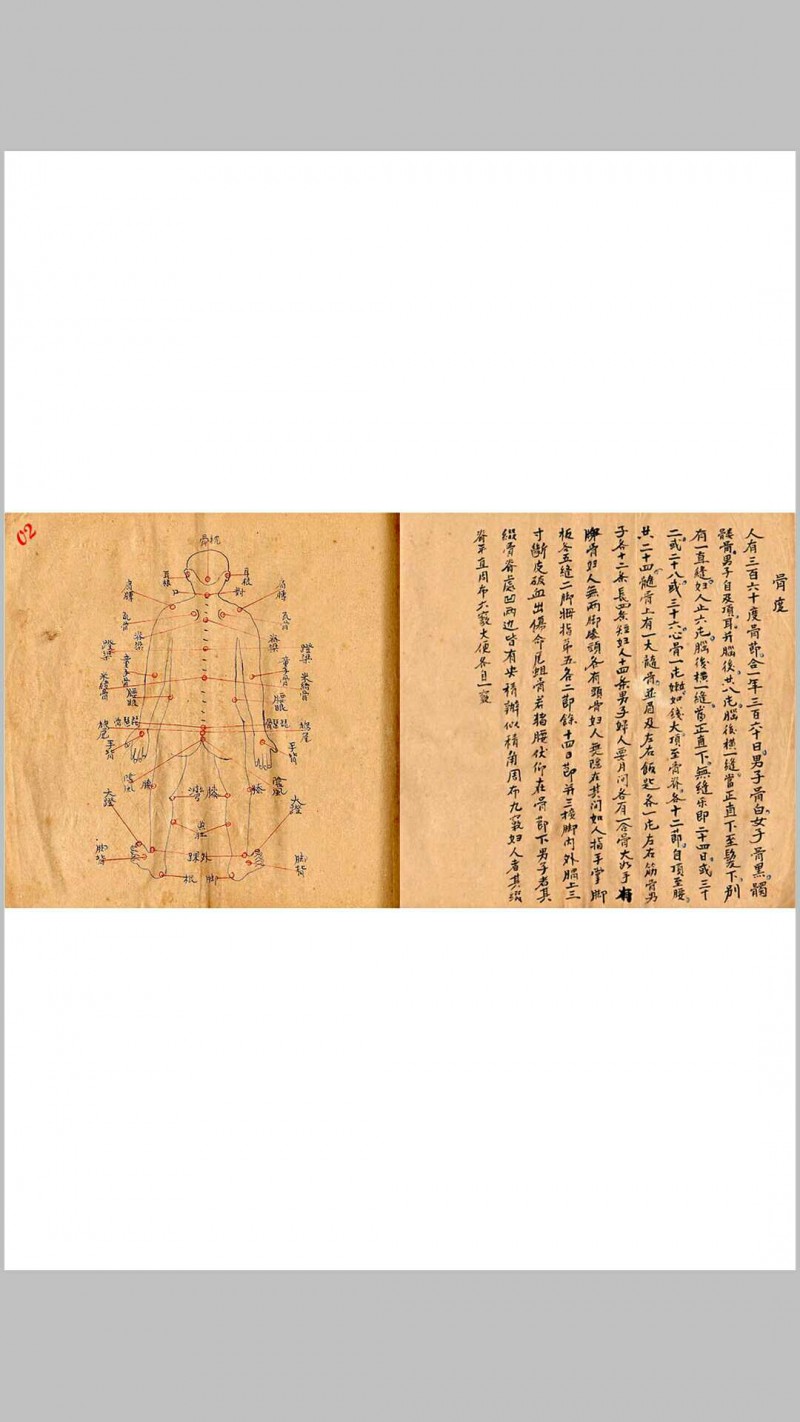 骨度
人有三百六十度骨節。合一年三百六十日。男子骨白。女子骨黑。髑
髏骨。男子自及項耳并腦後。共八片。腦後橫一縫。當正直下至髮下。別
有一直縫。妇人止六片。腦後橫一縫。當正直下。無縫即二十四日。或三十
二或二十八。或三十六。心骨一片。嫩如錢大。項至骨脊。各十二節。自項至腰。
共二十四髓骨上有一大髓骨。並肩及左右飯匙各一片左右筋骨男
子各十二条長四条短妇人十四条男子婦人要月问各有一合骨大如手有
髀骨妇人無兩脚膝頭各有頭骨妇人隱在其间如人指手掌脚
板各五縫二脚拇指第五各二節餘十四日節并三板脚内外膈上三
寸斷皮破血出傷命尼蛆骨若猪腰伏仰在骨節下男子者其
綴骨脊處凹兩边皆有尖稍瓣似稜角周布九竅妇人者其綴
脊平直周布六竅大便各自一竅
02
骨枕
耳根
耳根
肩膊
對
口
肩膊
脊梁
脊梁
腰眼
腰眼
手背
手背
膝
膝
外踝
脚背
脚背
脚根